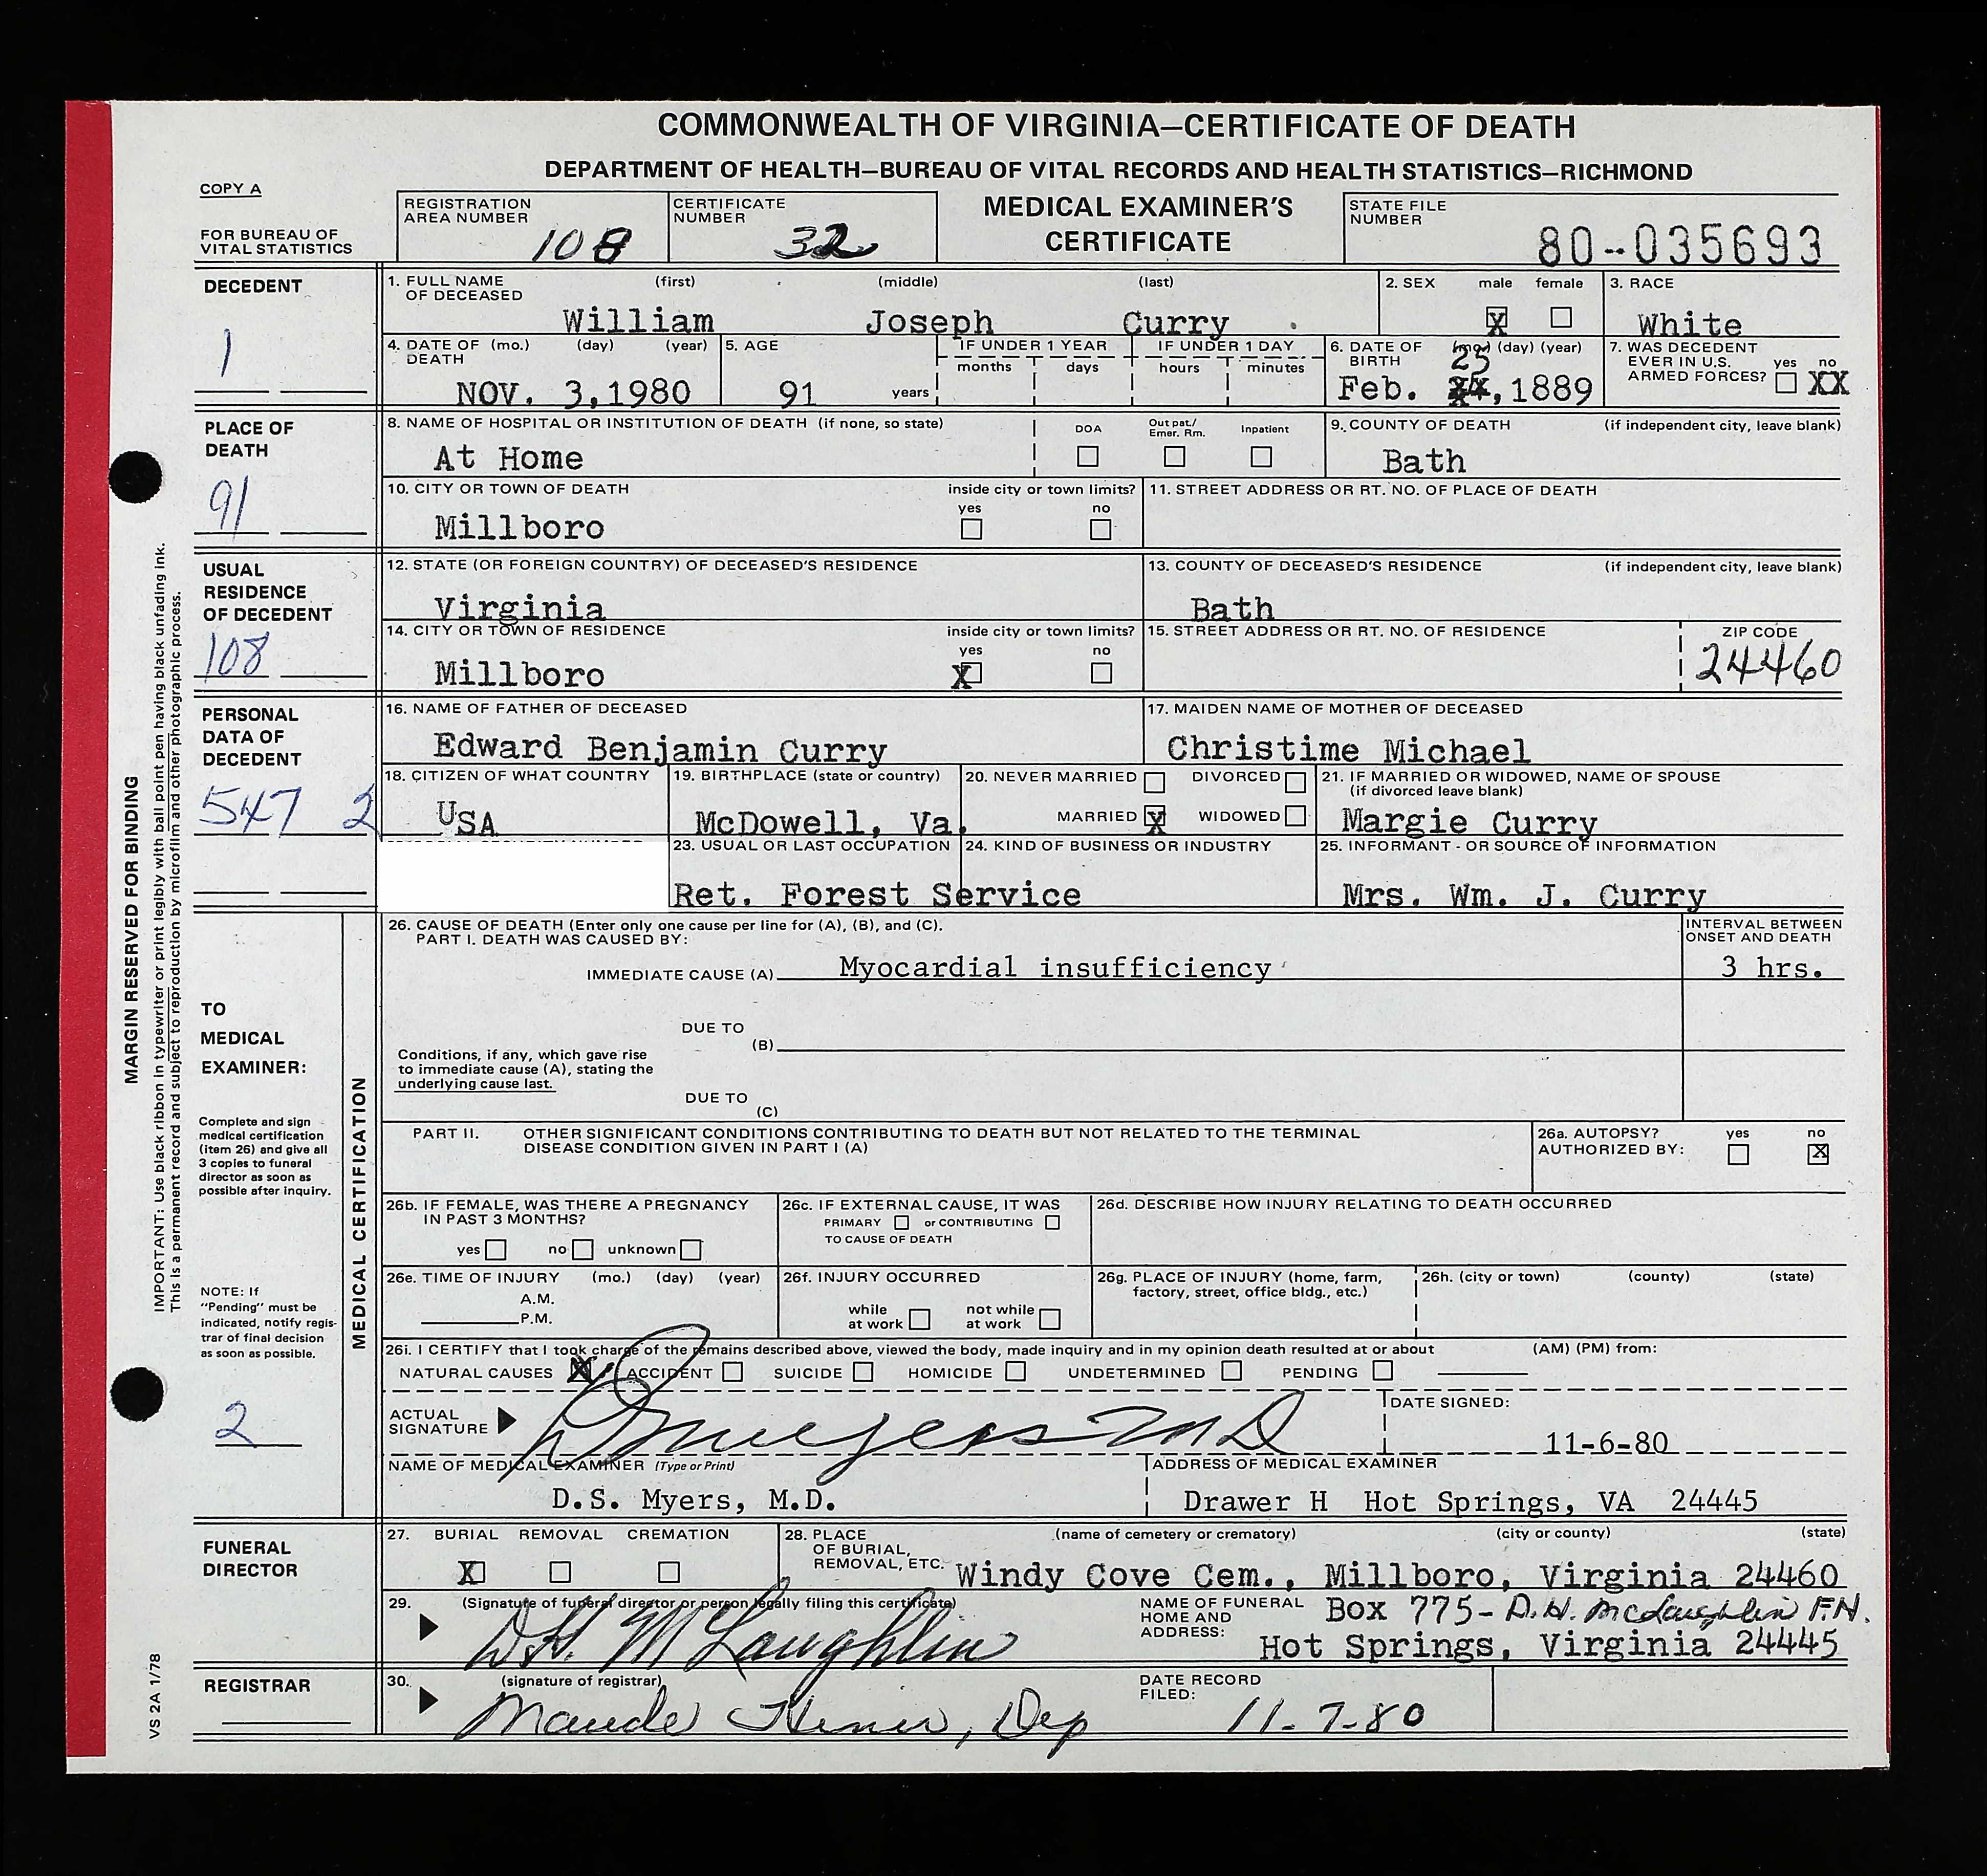 COMMONWEALTH OF VIRGINIA—CERTIFICATE OF DEATH
DEPARTMENT OF HEALTH—BUREAU OF VITAL RECORDS AND HEALTH STATISTICS—RICHMOND
COPY A
FOR BUREAU OF
VITAL STATISTICS
REGISTRATION
AREA NUMBER 108
CERTIFICATE
NUMBER 32
MEDICAL EXAMINER'S
CERTIFICATE
STATE FILE
NUMBER
80--035693
DECEDENT
1
1. FULL NAME (first) (middle) (last)
OF DECEASED
William Joseph Curry
2. SEX male female
X
3. RACE
White
4. DATE OF (mo.) (day) (year)
DEATH
NOV. 3,1980
5. AGE
91 years
IF UNDER 1 YEAR
months days
IF UNDER 1 DAY
hours minutes
6. DATE OF (mo.) (day) (year)
BIRTH 25
Feb. , 1889
7. WAS DECEDENT
EVER IN U.S. yes no
ARMED FORCES? XX
PLACE OF
DEATH
91
8. NAME OF HOSPITAL OR INSTITUTION OF DEATH (if none, so state)
At Home
DOA Out pat./ Emer. Rm. Inpatient
9. COUNTY OF DEATH (if independent city, leave blank)
Bath
10. CITY OR TOWN OF DEATH inside city or town limits?
yes no
Millboro
11. STREET ADDRESS OR RT. NO. OF PLACE OF DEATH
USUAL
RESIDENCE
OF DECEDENT
108
12. STATE (OR FOREIGN COUNTRY) OF DECEASED'S RESIDENCE
Virginia
13. COUNTY OF DECEASED'S RESIDENCE (if independent city, leave blank)
Bath
14. CITY OR TOWN OF RESIDENCE inside city or town limits?
yes no
Millboro X
15. STREET ADDRESS OR RT. NO. OF RESIDENCE
ZIP CODE
24460
PERSONAL
DATA OF
DECEDENT
547 2
16. NAME OF FATHER OF DECEASED
Edward Benjamin Curry
17. MAIDEN NAME OF MOTHER OF DECEASED
Christime Michael
18. CITIZEN OF WHAT COUNTRY
USA
19. BIRTHPLACE (state or country)
McDowell, Va.
20. NEVER MARRIED DIVORCED
MARRIED X WIDOWED
21. IF MARRIED OR WIDOWED, NAME OF SPOUSE
(if divorced leave blank)
Margie Curry
23. USUAL OR LAST OCCUPATION
24. KIND OF BUSINESS OR INDUSTRY
Ret. Forest Service
25. INFORMANT - OR SOURCE OF INFORMATION
Mrs. Wm. J. Curry
TO
MEDICAL
EXAMINER:
Complete and sign
medical certification
(item 26) and give all
3 copies to funeral
director as soon as
possible after inquiry.
NOTE: If
"Pending" must be
indicated, notify regis-
trar of final decision
as soon as possible.
2
MEDICAL CERTIFICATION
26. CAUSE OF DEATH (Enter only one cause per line for (A), (B), and (C).
PART I. DEATH WAS CAUSED BY:
IMMEDIATE CAUSE (A) Myocardial insufficiency
INTERVAL BETWEEN
ONSET AND DEATH
3 hrs.
DUE TO
(B)
Conditions, if any, which gave rise
to immediate cause (A), stating the
underlying cause last.
DUE TO
(C)
PART II. OTHER SIGNIFICANT CONDITIONS CONTRIBUTING TO DEATH BUT NOT RELATED TO THE TERMINAL
DISEASE CONDITION GIVEN IN PART I (A)
26a. AUTOPSY? yes no
AUTHORIZED BY: X
26b. IF FEMALE, WAS THERE A PREGNANCY
IN PAST 3 MONTHS?
yes no unknown
26c. IF EXTERNAL CAUSE, IT WAS
PRIMARY or CONTRIBUTING
TO CAUSE OF DEATH
26d. DESCRIBE HOW INJURY RELATING TO DEATH OCCURRED
26e. TIME OF INJURY (mo.) (day) (year)
A.M.
P.M.
26f. INJURY OCCURRED
while at work not while at work
26g. PLACE OF INJURY (home, farm,
factory, street, office bldg., etc.)
26h. (city or town) (county) (state)
26i. I CERTIFY that I took charge of the remains described above, viewed the body, made inquiry and in my opinion death resulted at or about (AM) (PM) from:
NATURAL CAUSES X ACCIDENT SUICIDE HOMICIDE UNDETERMINED PENDING
ACTUAL
SIGNATURE DSMyers MD
DATE SIGNED:
11-6-80
NAME OF MEDICAL EXAMINER (Type or Print)
D.S. Myers, M.D.
ADDRESS OF MEDICAL EXAMINER
Drawer H Hot Springs, VA 24445
FUNERAL
DIRECTOR
27. BURIAL REMOVAL CREMATION
X
28. PLACE (name of cemetery or crematory) (city or county) (state)
OF BURIAL,
REMOVAL, ETC. Windy Cove Cem., Millboro, Virginia 24460
29. (Signature of funeral director or person legally filing this certificate)
D.H. McLaughlin
NAME OF FUNERAL
HOME AND
ADDRESS:
Box 775- D.H. McLaughlin F.H.
Hot Springs, Virginia 24445
REGISTRAR
30. (signature of registrar)
Maude , Dep
DATE RECORD
FILED: 11-7-80
MARGIN RESERVED FOR BINDING
IMPORTANT: Use black ribbon in typewriter or print legibly with ball point pen having black unfading ink.
This is a permanent record and subject to reproduction by microfilm and other photographic process.
VS 2A 1/78